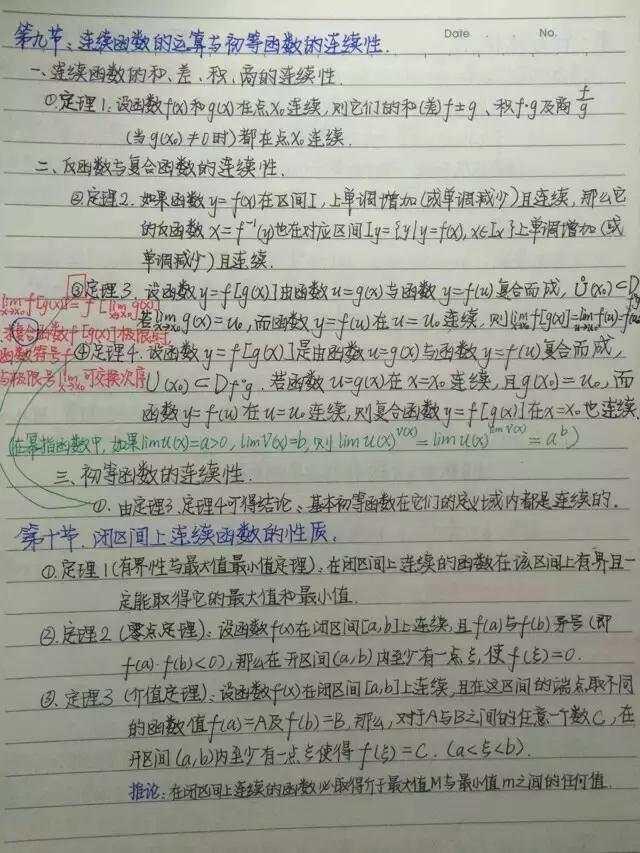 Date . . No.
第九节：连续函数的运算与初等函数的连续性.
一、连续函数的和、差、积、商的连续性.
①定理1：设函数f(x)和g(x)在点x₀连续，则它们的和(差)f±g、积f·g及商f/g
(当g(x₀)≠0时)都在点x₀连续.
二、反函数与复合函数的连续性.
②定理2. 如果函数y=f(x)在区间I，上单调增加(或单调减少)且连续，那么它
的反函数x=f⁻¹(y)也在对应区间Iy={y|y=f(x), x∈Ix}上单调增加(或
单调减少)且连续.
③定理3. 设函数y=f[g(x)]由函数u=g(x)与函数y=f(u)复合而成，Ů(x₀)⊂D
若lim x→x₀ g(x)=u₀，而函数y=f(u)在u=u₀连续，则lim x→x₀ f[g(x)]=lim u→u₀ f(u)=f(u₀)
lim x→x₀ f[g(x)]=f[lim x→x₀ g(x)]
求复合函数f[g(x)]极限时，
函数符号f
与极限号lim x→x₀可交换次序
④定理4. 设函数y=f[g(x)]是由函数u=g(x)与函数y=f(u)复合而成，
U(x₀)⊂Df∘g. 若函数u=g(x)在x=x₀连续，且g(x₀)=u₀，而
函数y=f(u)在u=u₀连续，则复合函数y=f[g(x)]在x=x₀也连续.
(在幂指函数中，如果lim u(x)=a>0, lim v(x)=b, 则lim u(x)^v(x)=lim u(x)^lim v(x)=a^b)
三、初等函数的连续性.
①. 由定理3、定理4可得结论：基本初等函数在它们的定义域内都是连续的.
第十节. 闭区间上连续函数的性质.
①.定理1(有界性与最大值最小值定理)：在闭区间上连续的函数在该区间上有界且一
定能取得它的最大值和最小值.
②.定理2 (零点定理)：设函数f(x)在闭区间[a,b]上连续，且f(a)与f(b)异号(即
f(a)·f(b)<0)，那么在开区间(a,b)内至少有一点ξ，使f(ξ)=0.
③. 定理3 (介值定理)：设函数f(x)在闭区间[a,b]上连续，且在这区间的端点取不同
的函数值f(a)=A及f(b)=B，那么，对于A与B之间的任意一个数C，在
开区间(a,b)内至少有一点ξ使得f(ξ)=C. (a<ξ<b).
推论：在闭区间上连续的函数必取得介于最大值M与最小值m之间的任何值.